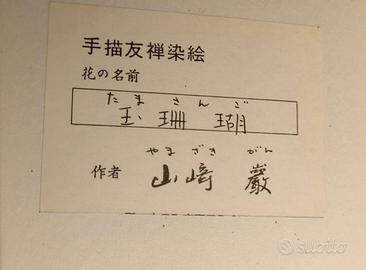 手描友禅染絵
花の名前
たまさんご
玉珊瑚
やまざきがん
作者 山﨑巌
subito